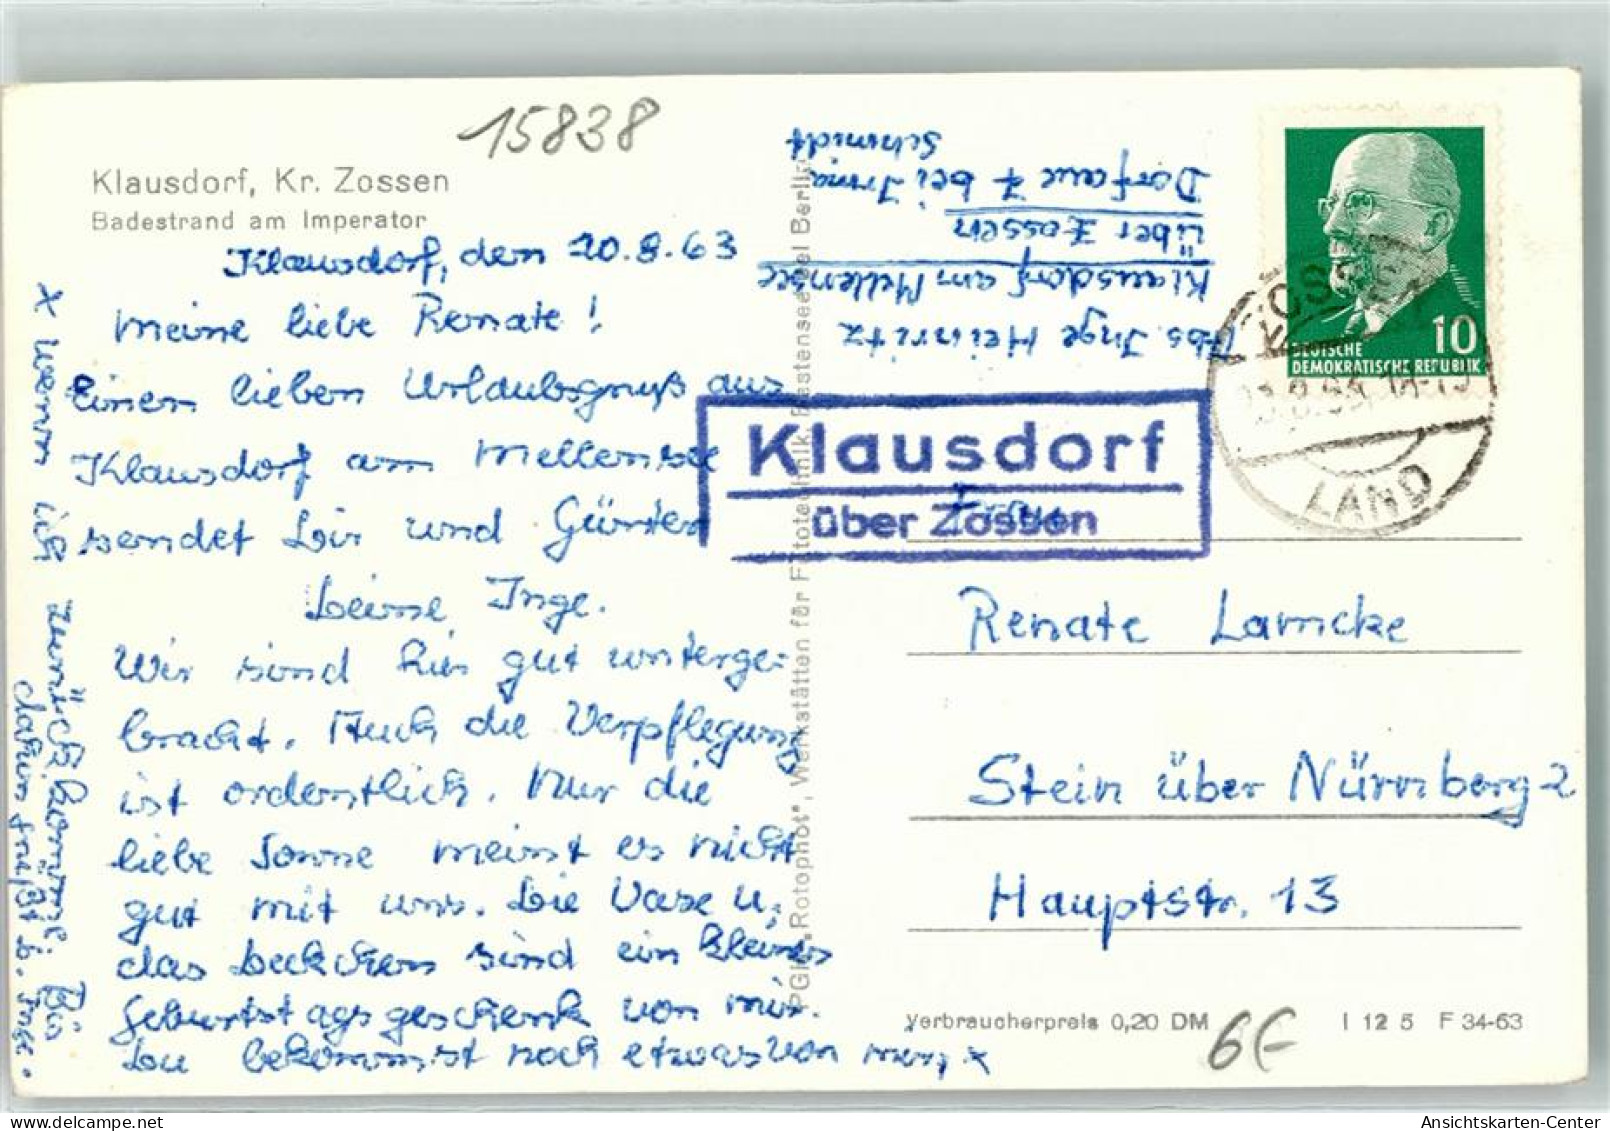 15838
Klausdorf, Kr. Zossen
Badestrand am Imperator
Klausdorf, den 20.8.63
Meine liebe Renate!
Einen lieben Urlaubsgruß aus
Klausdorf am Mellensee
sendet Dir und Günter
Deine Inge.
Wir sind hier gut unterge-
bracht. Auch die Verpflegung
ist ordentlich. Nur die
liebe Sonne meint es nicht
gut mit uns. Die Vase u.
das Deckchen sind ein kleines
Geburtstagsgeschenk von mir.
Du bekommst noch etwas von mir, x
x wenn ich zurückkomme. Bis
dahin grüßt D. Inge.
Abs. Inge Heinritz
Klausdorf am Mellensee
über Zossen
Dorfaue 7 bei Irma
Schmidt
PGH "Rotophot", Werkstätten für Fototechnik, Bestensee
Berlin
10
DEUTSCHE
DEMOKRATISCHE REPUBLIK
ZOSSEN
LAND
Klausdorf
über Zossen
Renate Lamcke
Stein über Nürnberg 2
Hauptstr. 13
Verbraucherpreis 0,20 DM
I 12 5 F 34-63
6€
Ansichtskarten-Center